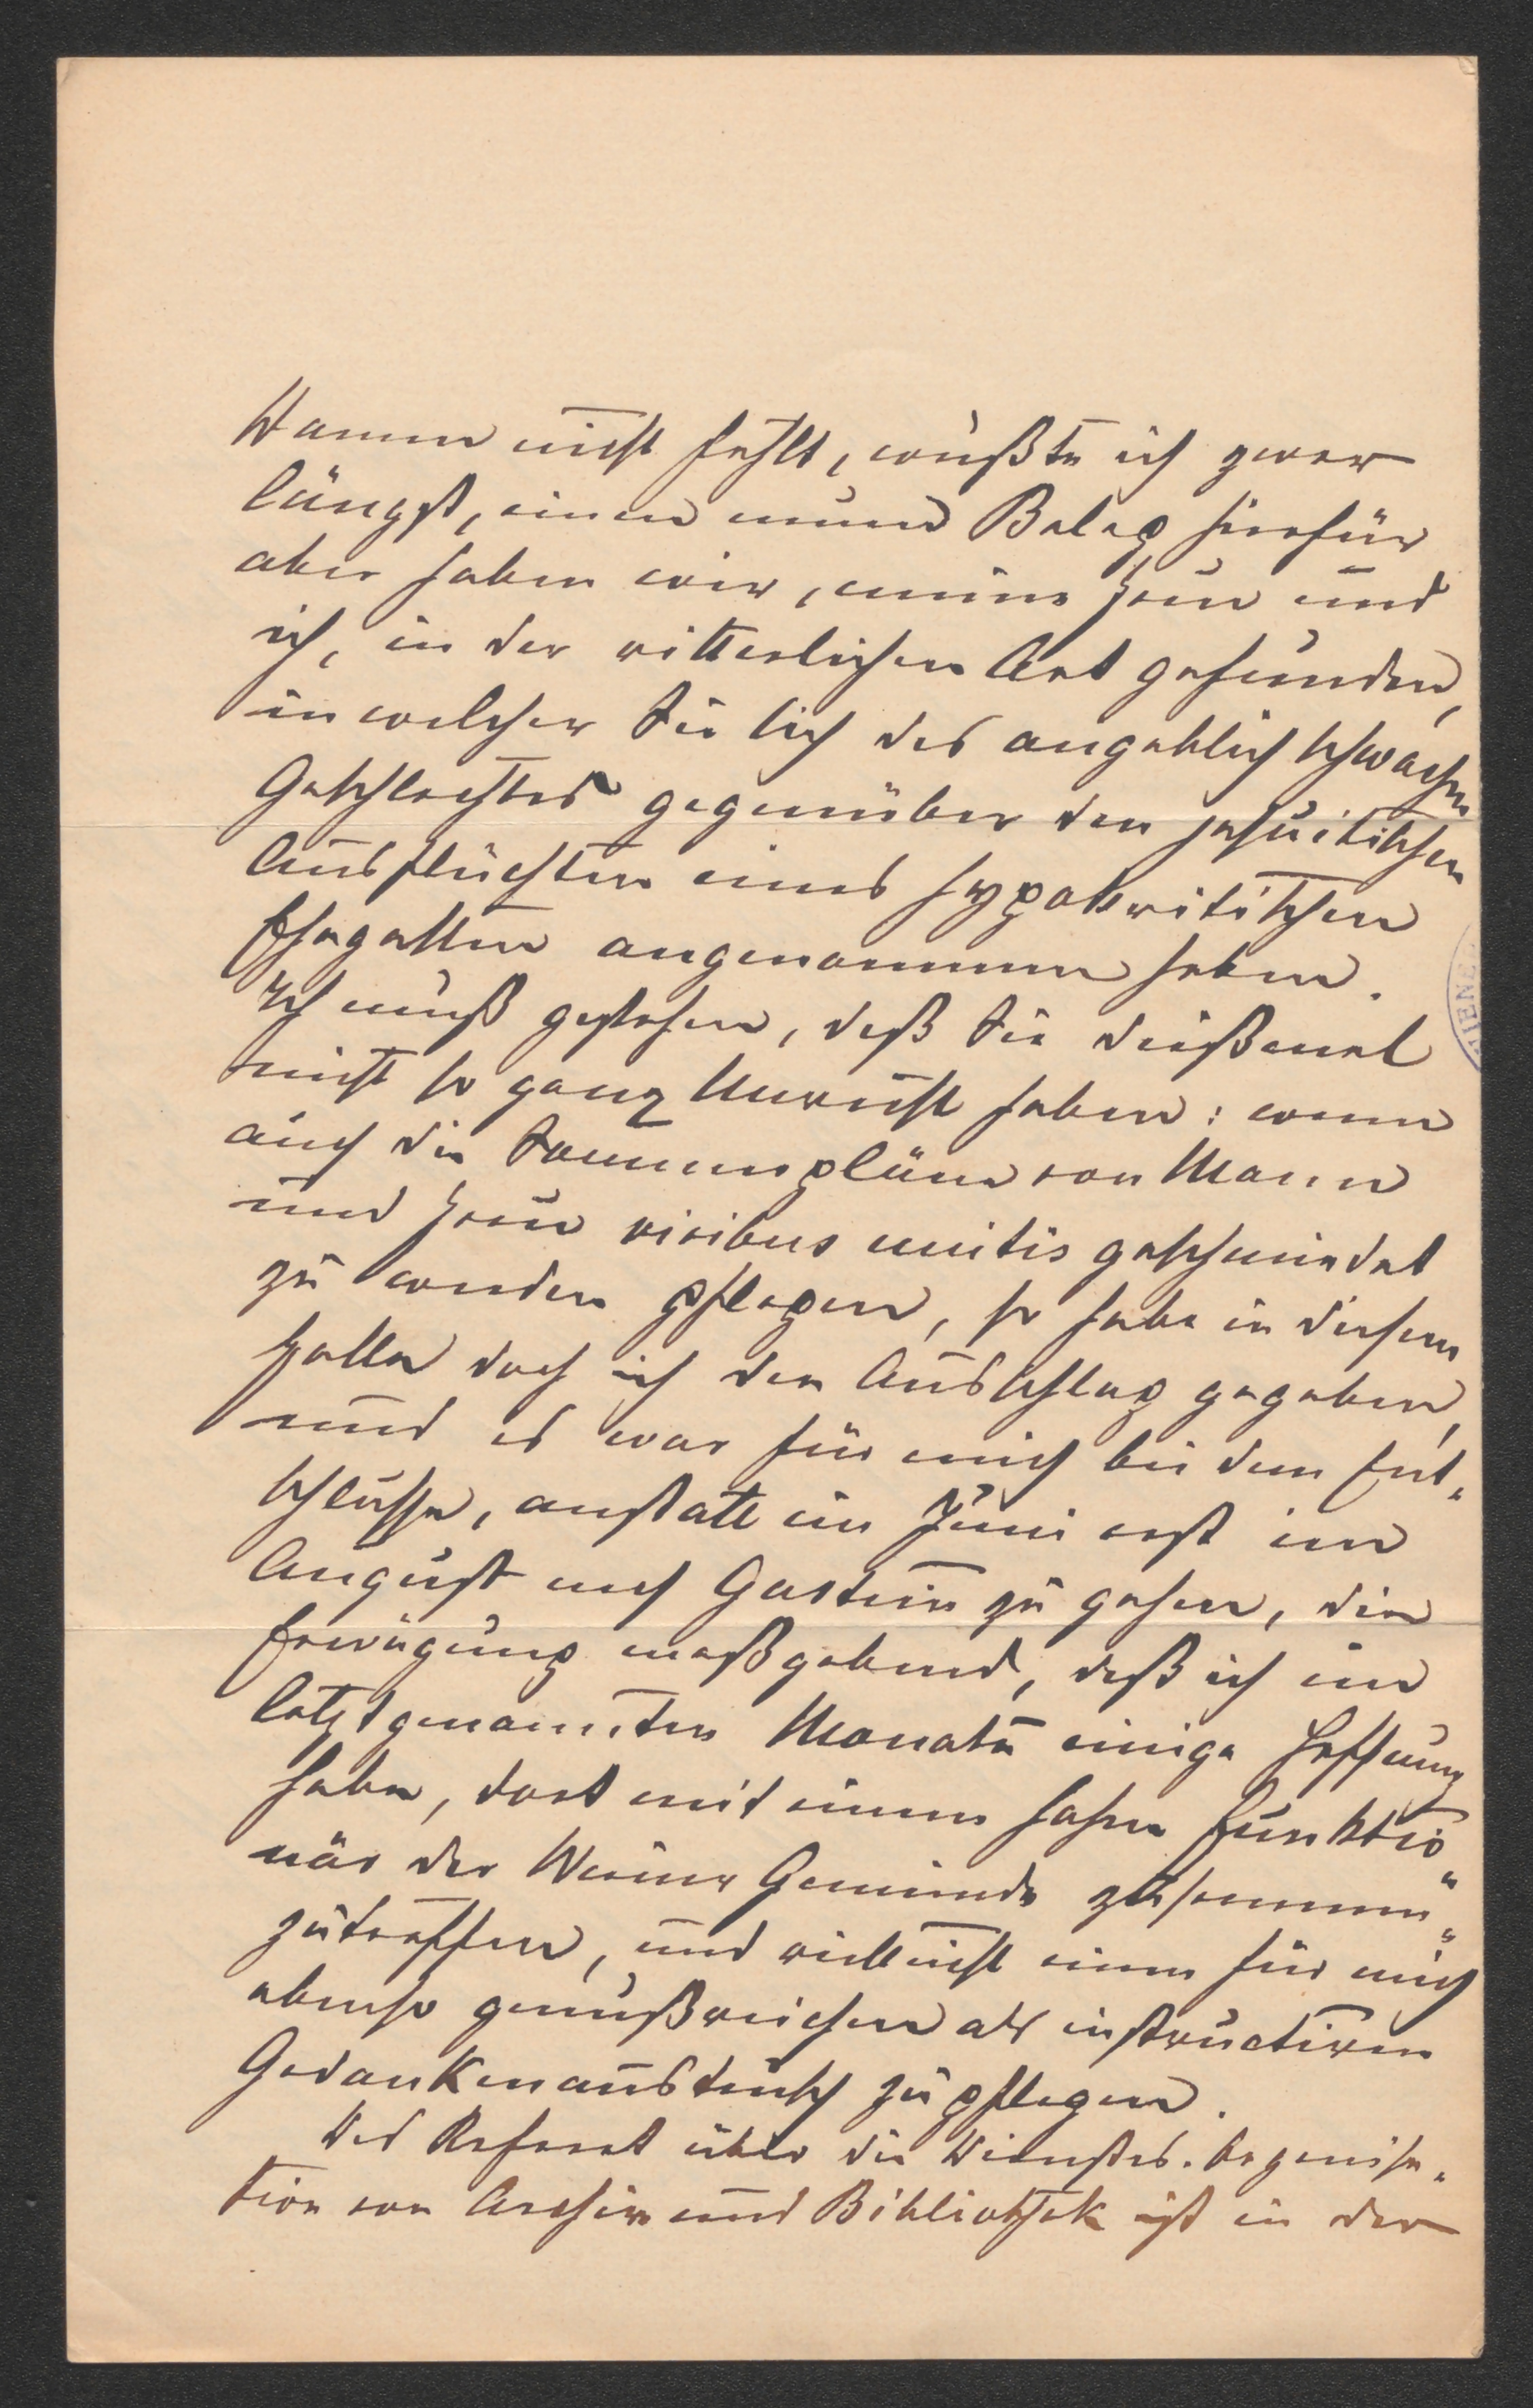 Damen nicht fehlt, wußte ich zwar
längst, einen neuen Beleg hierfür
aber haben wir, meine Frau und
ich, in der ritterlichen Art gefunden,
in welcher Sie sich des angeblich schwachen
Geschlechtes gegenüber den jesuitischen
Ausflüchten eines hypokritischen
Ehegatten angenommen haben.
Ich muß gestehen, daß Sie dießmal
nicht so ganz Unrecht haben: wenn
auch die Sommerpläne von Mann
und Frau viribus unitis geschmiedet
zu werden pflegen, so habe in diesem
Falle doch ich den Ausschlag gegeben,
und es war für mich bei dem Ent-
schlusse, anstatt im Juni erst im
August nach Gastein zu gehen, die
Erwägung maßgebend, daß ich im
letztgenannten Monate einige Hoffnung
habe, dort mit einem hohen Funktio-
när der Wiener Gemeinde zusammen-
zutreffen, und vielleicht einen für mich
ebenso genußreichen als instructiven
Gedankenaustausch zu pflegen.
Das Referat über die Dienstes-Organisa-
tion von Archiv und Bibliothek ist in der